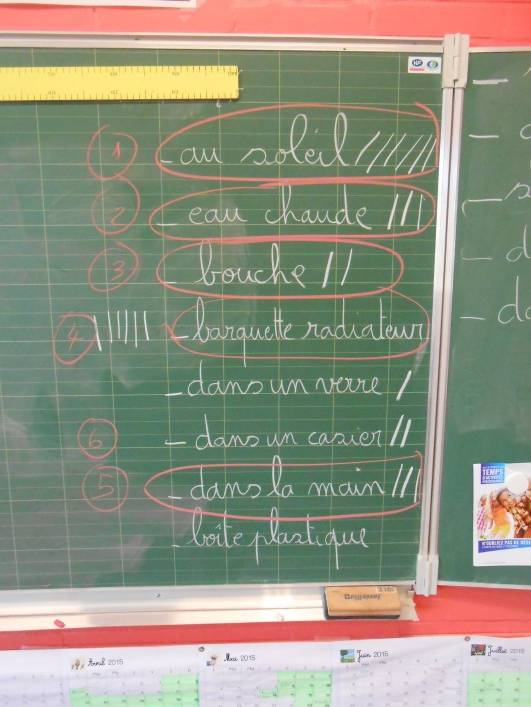 1 - au soleil
2 - eau chaude |||
3 - bouche ||
4 - barquette radiateur
- dans un verre |
6 - dans un casier ||
5 - dans la main |||
- boîte plastique
TEMPS
Avril 2015
Mai 2015
Juin 2015
Juillet 2015